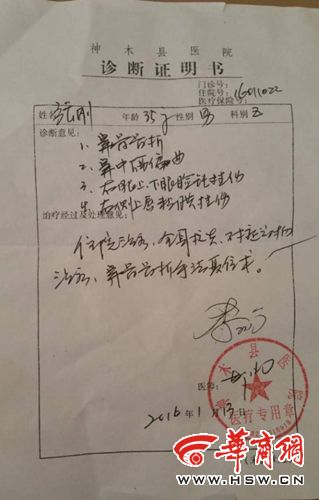 神木县医院
诊断证明书
门诊号:
住院号: 16011022
医疗保险号:
姓名 刚 年龄 35岁 性别 男 科别 五
诊断意见:
1、鼻骨骨折
2、鼻中隔偏曲
3、右眼上、下眼睑挫伤
4、右侧上唇粘膜挫伤
治疗经过及处理意见:
住院治疗,全身抗炎、对症
治疗、鼻骨骨折手法复位术。
医师:
2016年1月13日
神木县医院
医疗专用章
华商网
WWW.HSW.CN